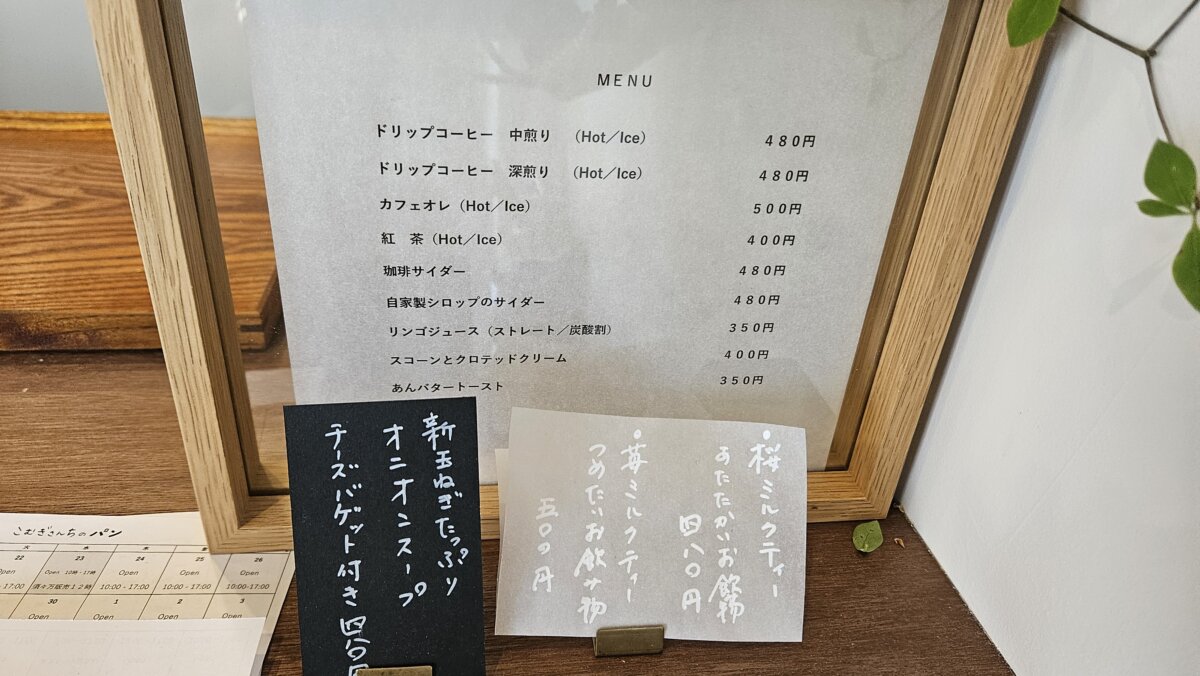 MENU
ドリップコーヒー　中煎り　（Hot／Ice）　480円
ドリップコーヒー　深煎り　（Hot／Ice）　480円
カフェオレ（Hot／Ice）　500円
紅　茶（Hot／Ice）　400円
珈琲サイダー　480円
自家製シロップのサイダー　480円
リンゴジュース（ストレート／炭酸割）　350円
スコーンとクロテッドクリーム　400円
あんバタートースト　350円
新玉ねぎたっぷり
オニオンスープ
チーズバゲット付き 四八〇円
・桜ミルクティー
あたたかいお飲物
四八〇円
・苺ミルクティー
つめたいお飲み物
五〇〇円
こむぎさんちのパン
火 水 木 金 土
22 23 24 25 26
Open Open 10時-17時 Open Open Open
17:00 須々万販市12時 10:00-17:00 10:00-17:00 10:00-17:00
30 1 2 3
Open Open Open Open